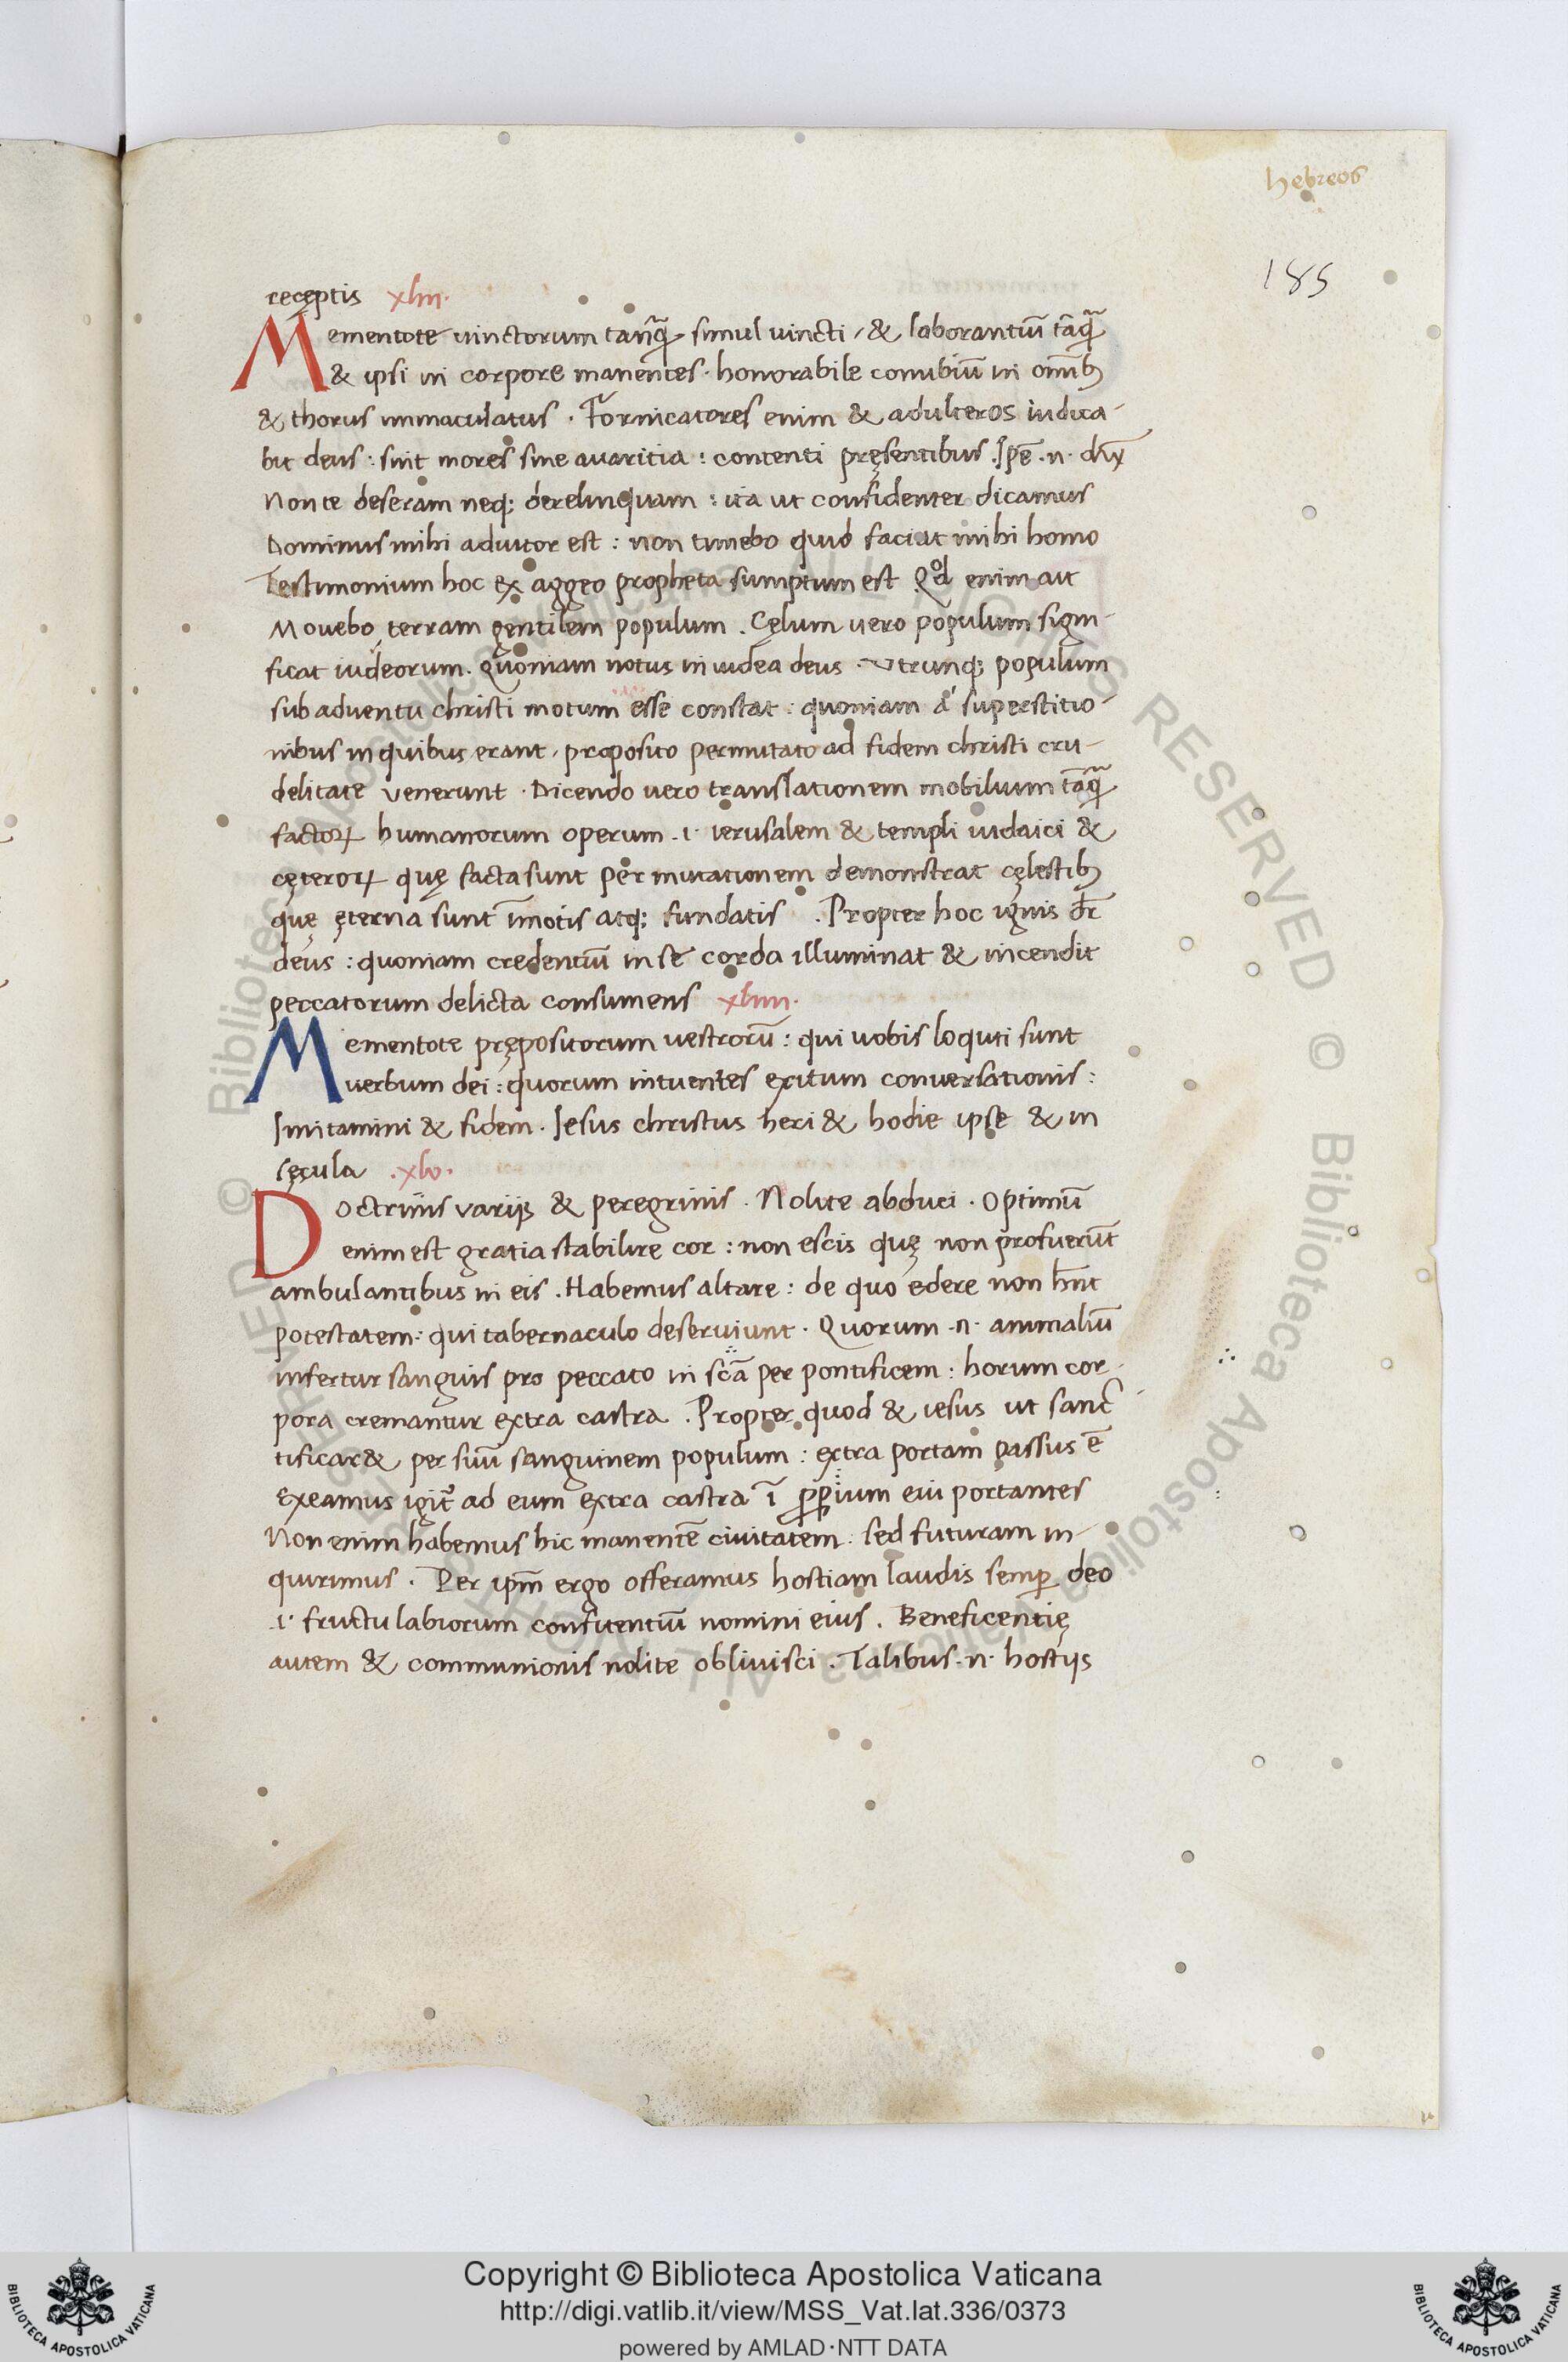 hebreos
185
recęptis xliii.
Mementote uinctorum tanq̃ simul uincti, & laborantiū tãq̃
& ipsi in corpore manentes. honorabile conubiū in omībꝫ
& thorus immaculatus. Fornicatores enim & adulteros iudica-
bit deus: sint mores sine auaritia: contenti pręsentibus. Ipse .n. dix̄
Non te deseram neqꝫ derelinquam: ita ut confidenter dicamus
Dominus mihi adiutor est: non timebo quid faciat mihi homo
Testimonium hoc ex aggeo propheta sumptum est. Qd enim ait
Mouebo terram gentilem populum. Cęlum uero populum signi-
ficat iudeorum. quoniam notus in iudea deus. utrunqꝫ populum
sub aduentu christi motum esse constat: quoniam a superstitio-
nibus in quibus erant, proposito permutato ad fidem christi cru-
delitate venerunt. Dicendo uero translationem mobilium tãq̃
factoꝝ humanorum operum .i. ierusalem & templi iudaici &
cęteroꝝ quę facta sunt per mutationem demonstrat cęlestibꝫ
quę ęterna sunt īmotis atqꝫ fundatis. Propter hoc ignis dr̄
deus: quoniam credentiū in se corda illuminat & incendit
peccatorum delicta consumens xliiii.
Mementote prępositorum uestrorū: qui uobis loquti sunt
uerbum dei: quorum intuentes exitum conuersationis:
Imitamini & fidem. Iesus christus heri & hodie ipse & in
sęcula .xlv.
Doctrinis variis & peregrinis. Nolite abduci. Optimū
enim est gratia stabilire cor: non escis quę non profuerūt
ambulantibus in eis. Habemus altare: de quo edere non hn̄t
potestatem: qui tabernaculo deseruiunt. Quorum .n. animaliū
infertur sanguis pro peccato in sc̄a per pontificem: horum cor-
pora cremantur extra castra. Propter quod & iesus ut sanc-
tificar& per suū sanguinem populum: extra portam passus ē
Exeamus igit̃ ad eum extra castra ī ꝓpium eiu portantes
Non enim habemus hic manentē ciuitatem. sed futuram in-
quirimus. Per ipm̄ ergo offeramus hostiam laudis semꝑ deo
.i. fructu labiorum confitentiū nomini eius. Beneficentię
autem & communionis nolite obliuisci. Talibus .n. hostijs
© Biblioteca Apostolica Vaticana ALL RIGHTS RESERVED © Biblioteca Apostolica Vaticana ALL RIGHTS RESERVED
BIBLIOTECA APOSTOLICA VATICANA
Copyright © Biblioteca Apostolica Vaticana
http://digi.vatlib.it/view/MSS_Vat.lat.336/0373
powered by AMLAD·NTT DATA
BIBLIOTECA APOSTOLICA VATICANA